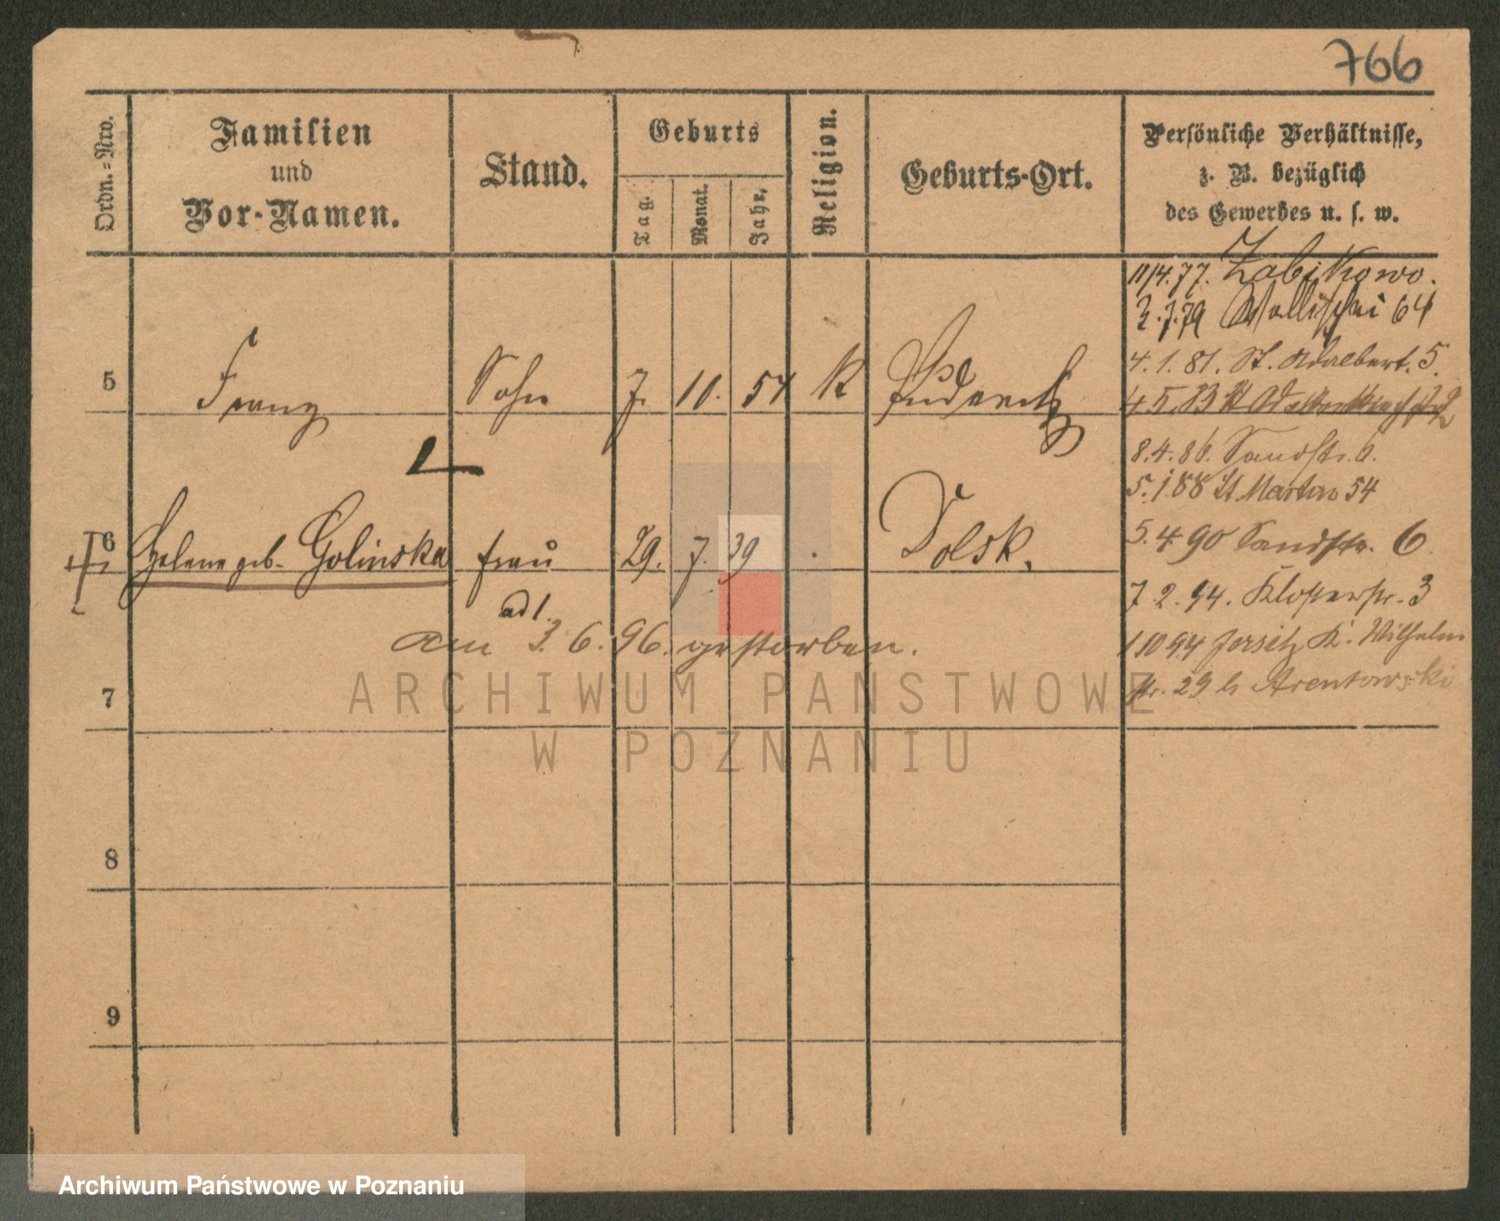 766
Ordn.-Nro.
Familien
und
Vor-Namen.
Stand.
Geburts
Tag.
Monat.
Jahr.
Religion.
Geburts-Ort.
Persönliche Verhältnisse,
z. B. bezüglich
des Gewerbes u. s. w.
11/4.77. Zabikowo.
2.7.79 Wallischei 64
4.1.81. St. Adalbert. 5.
5 Franz Sohn 7. 10. 54 K
4 5.83
8.4.86. Sandstr. 6.
5.1.88 St Martin 54
6 Helene geb. Golinska frau 29. 7. 39 Dolsk.
5.4 90 Sandstr. 6.
adl.
7 2. 94. Klosterstr. 3
am 3. 6. 96. gestorben.
1 10 94 Jersitz K. Wilhelm
str. 29 b Arentowski
7
8
9
ARCHIWUM PAŃSTWOWE
W POZNANIU
Archiwum Państwowe w Poznaniu